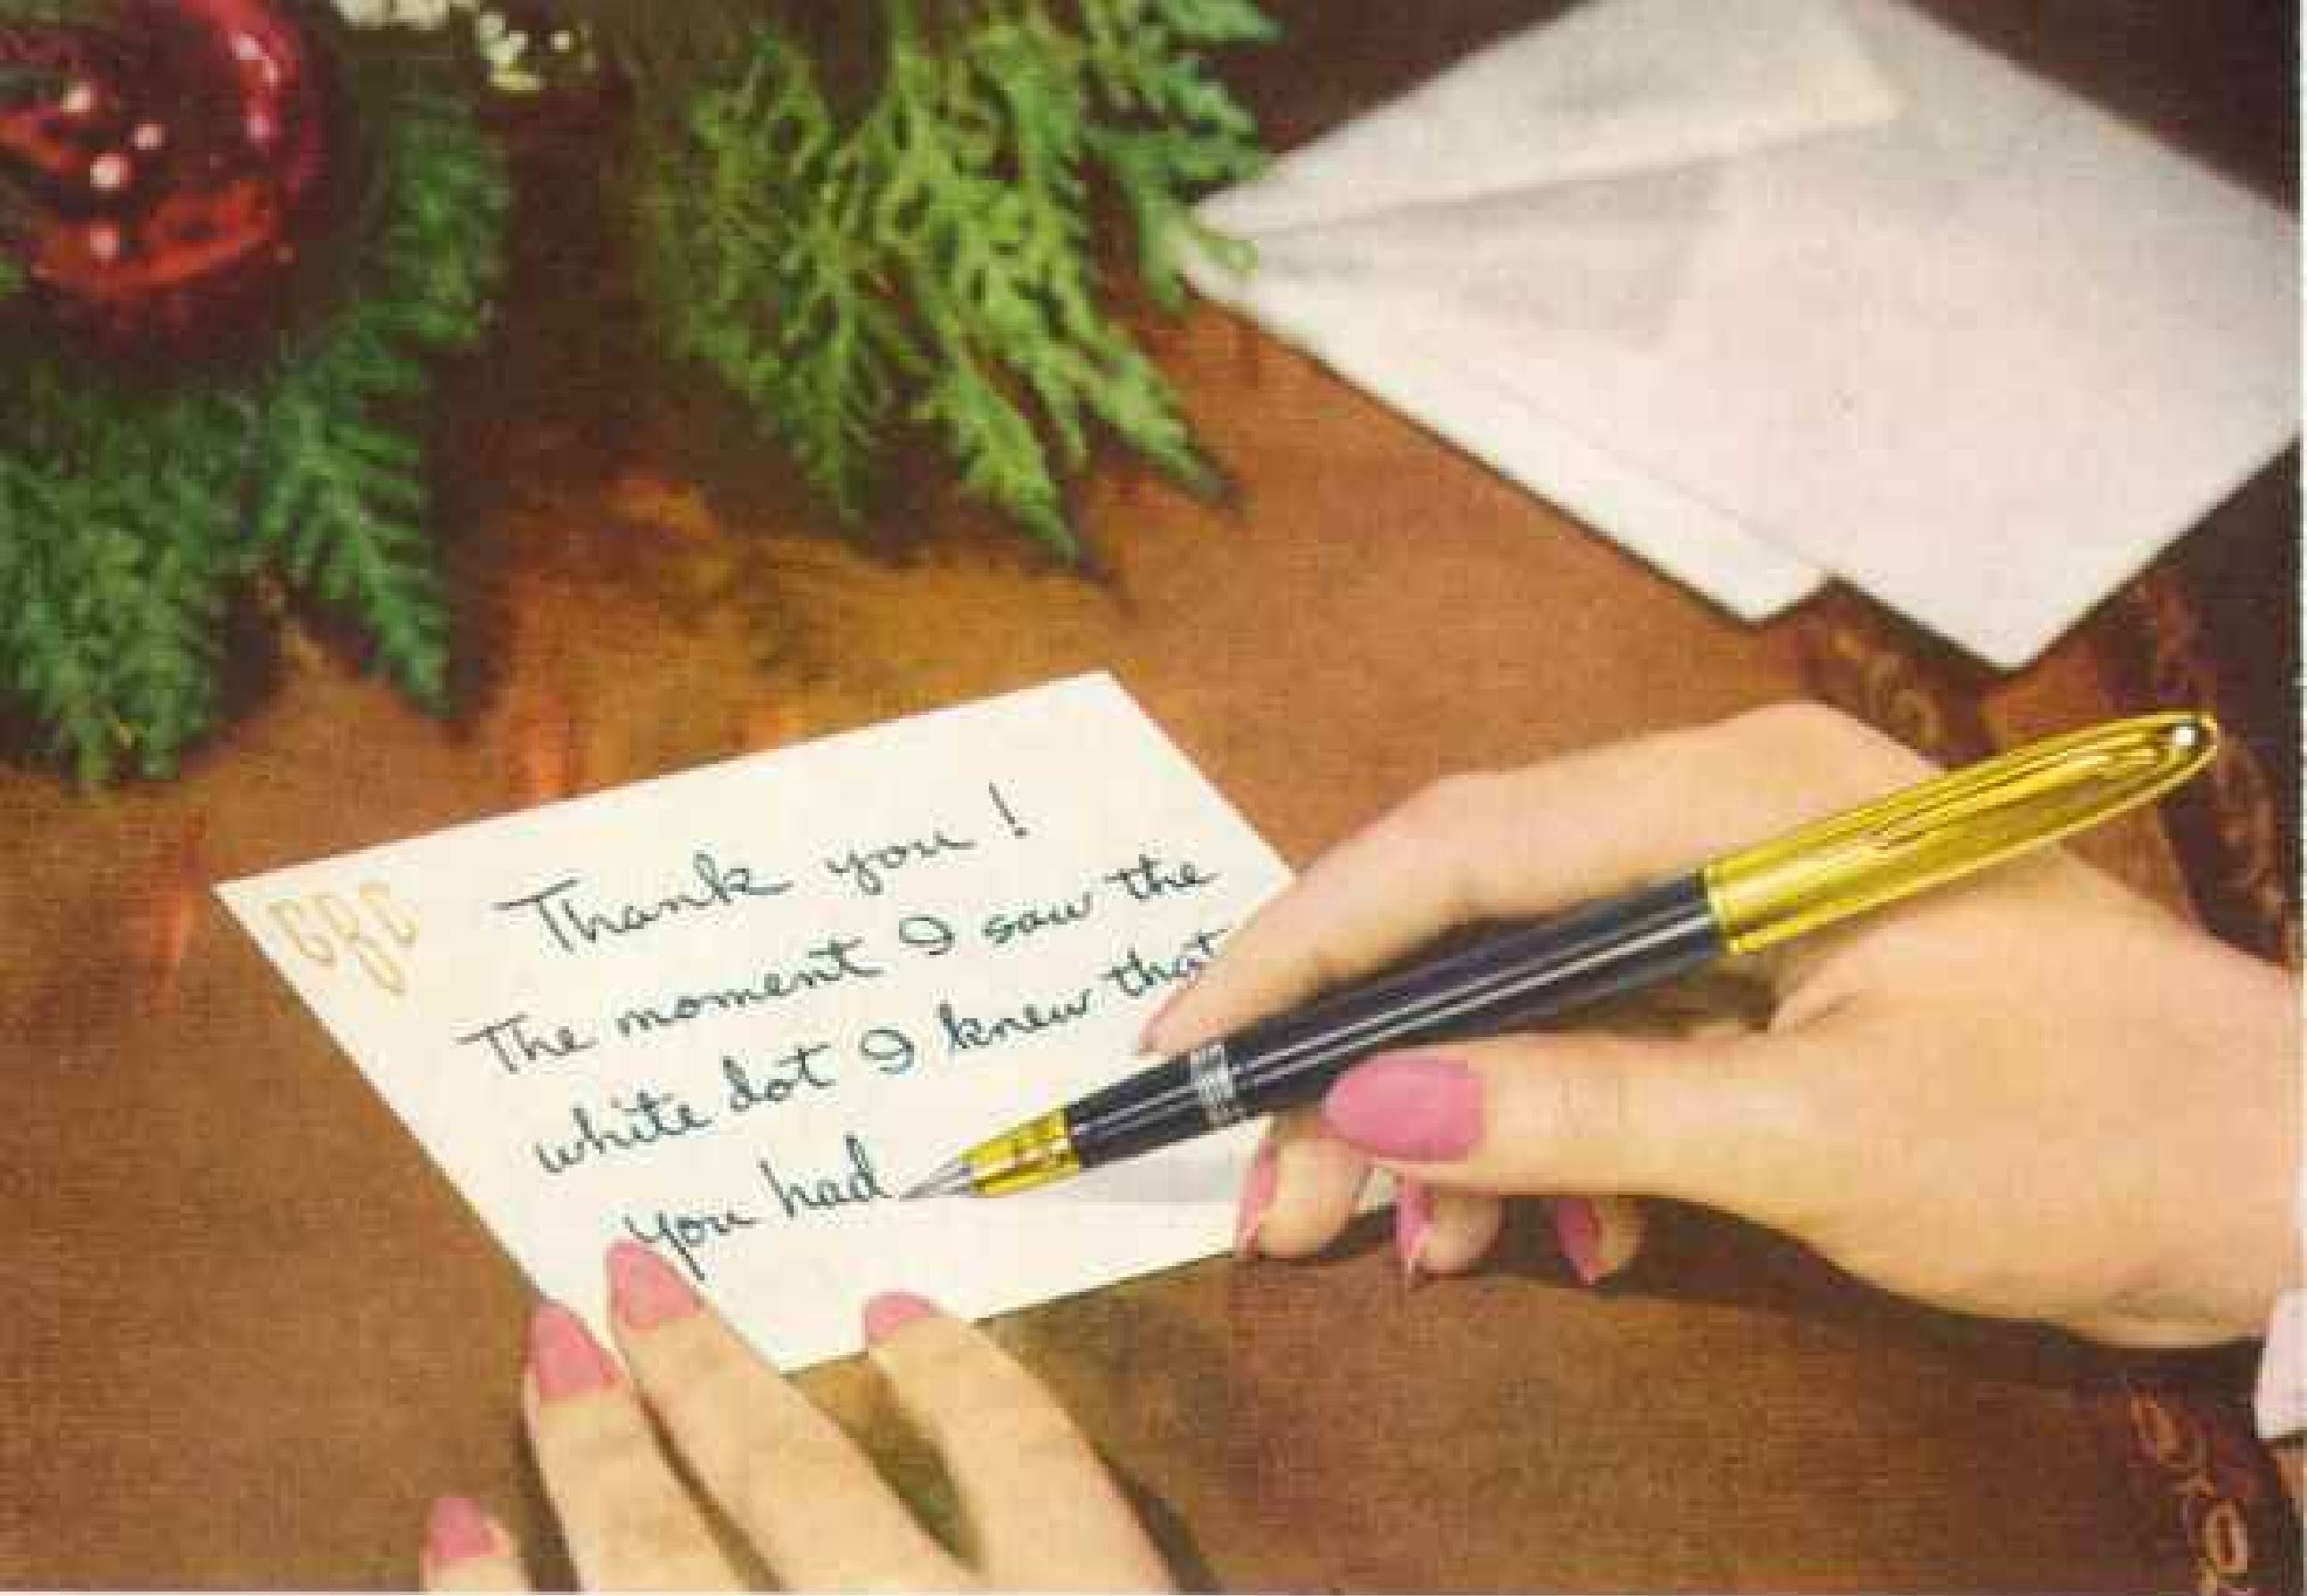 Thank you!
The moment I saw the
white dot I knew that
you had